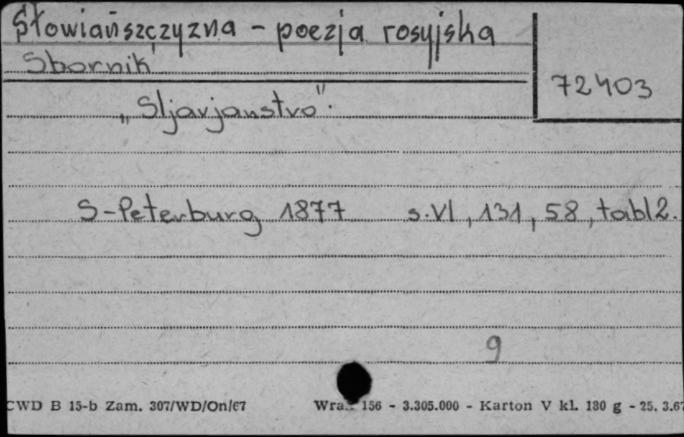 Słowiańszczyzna - poezja rosyjska
Sbornik
72403
„Sljavjanstvo".
S-Peterburg 1877 s. VI, 131, 58, tabl 2.
9
CWD B 15-b Zam. 307/WD/On/67 156 - 3.305.000 - Karton V kl. 180 g - 25. 3.67